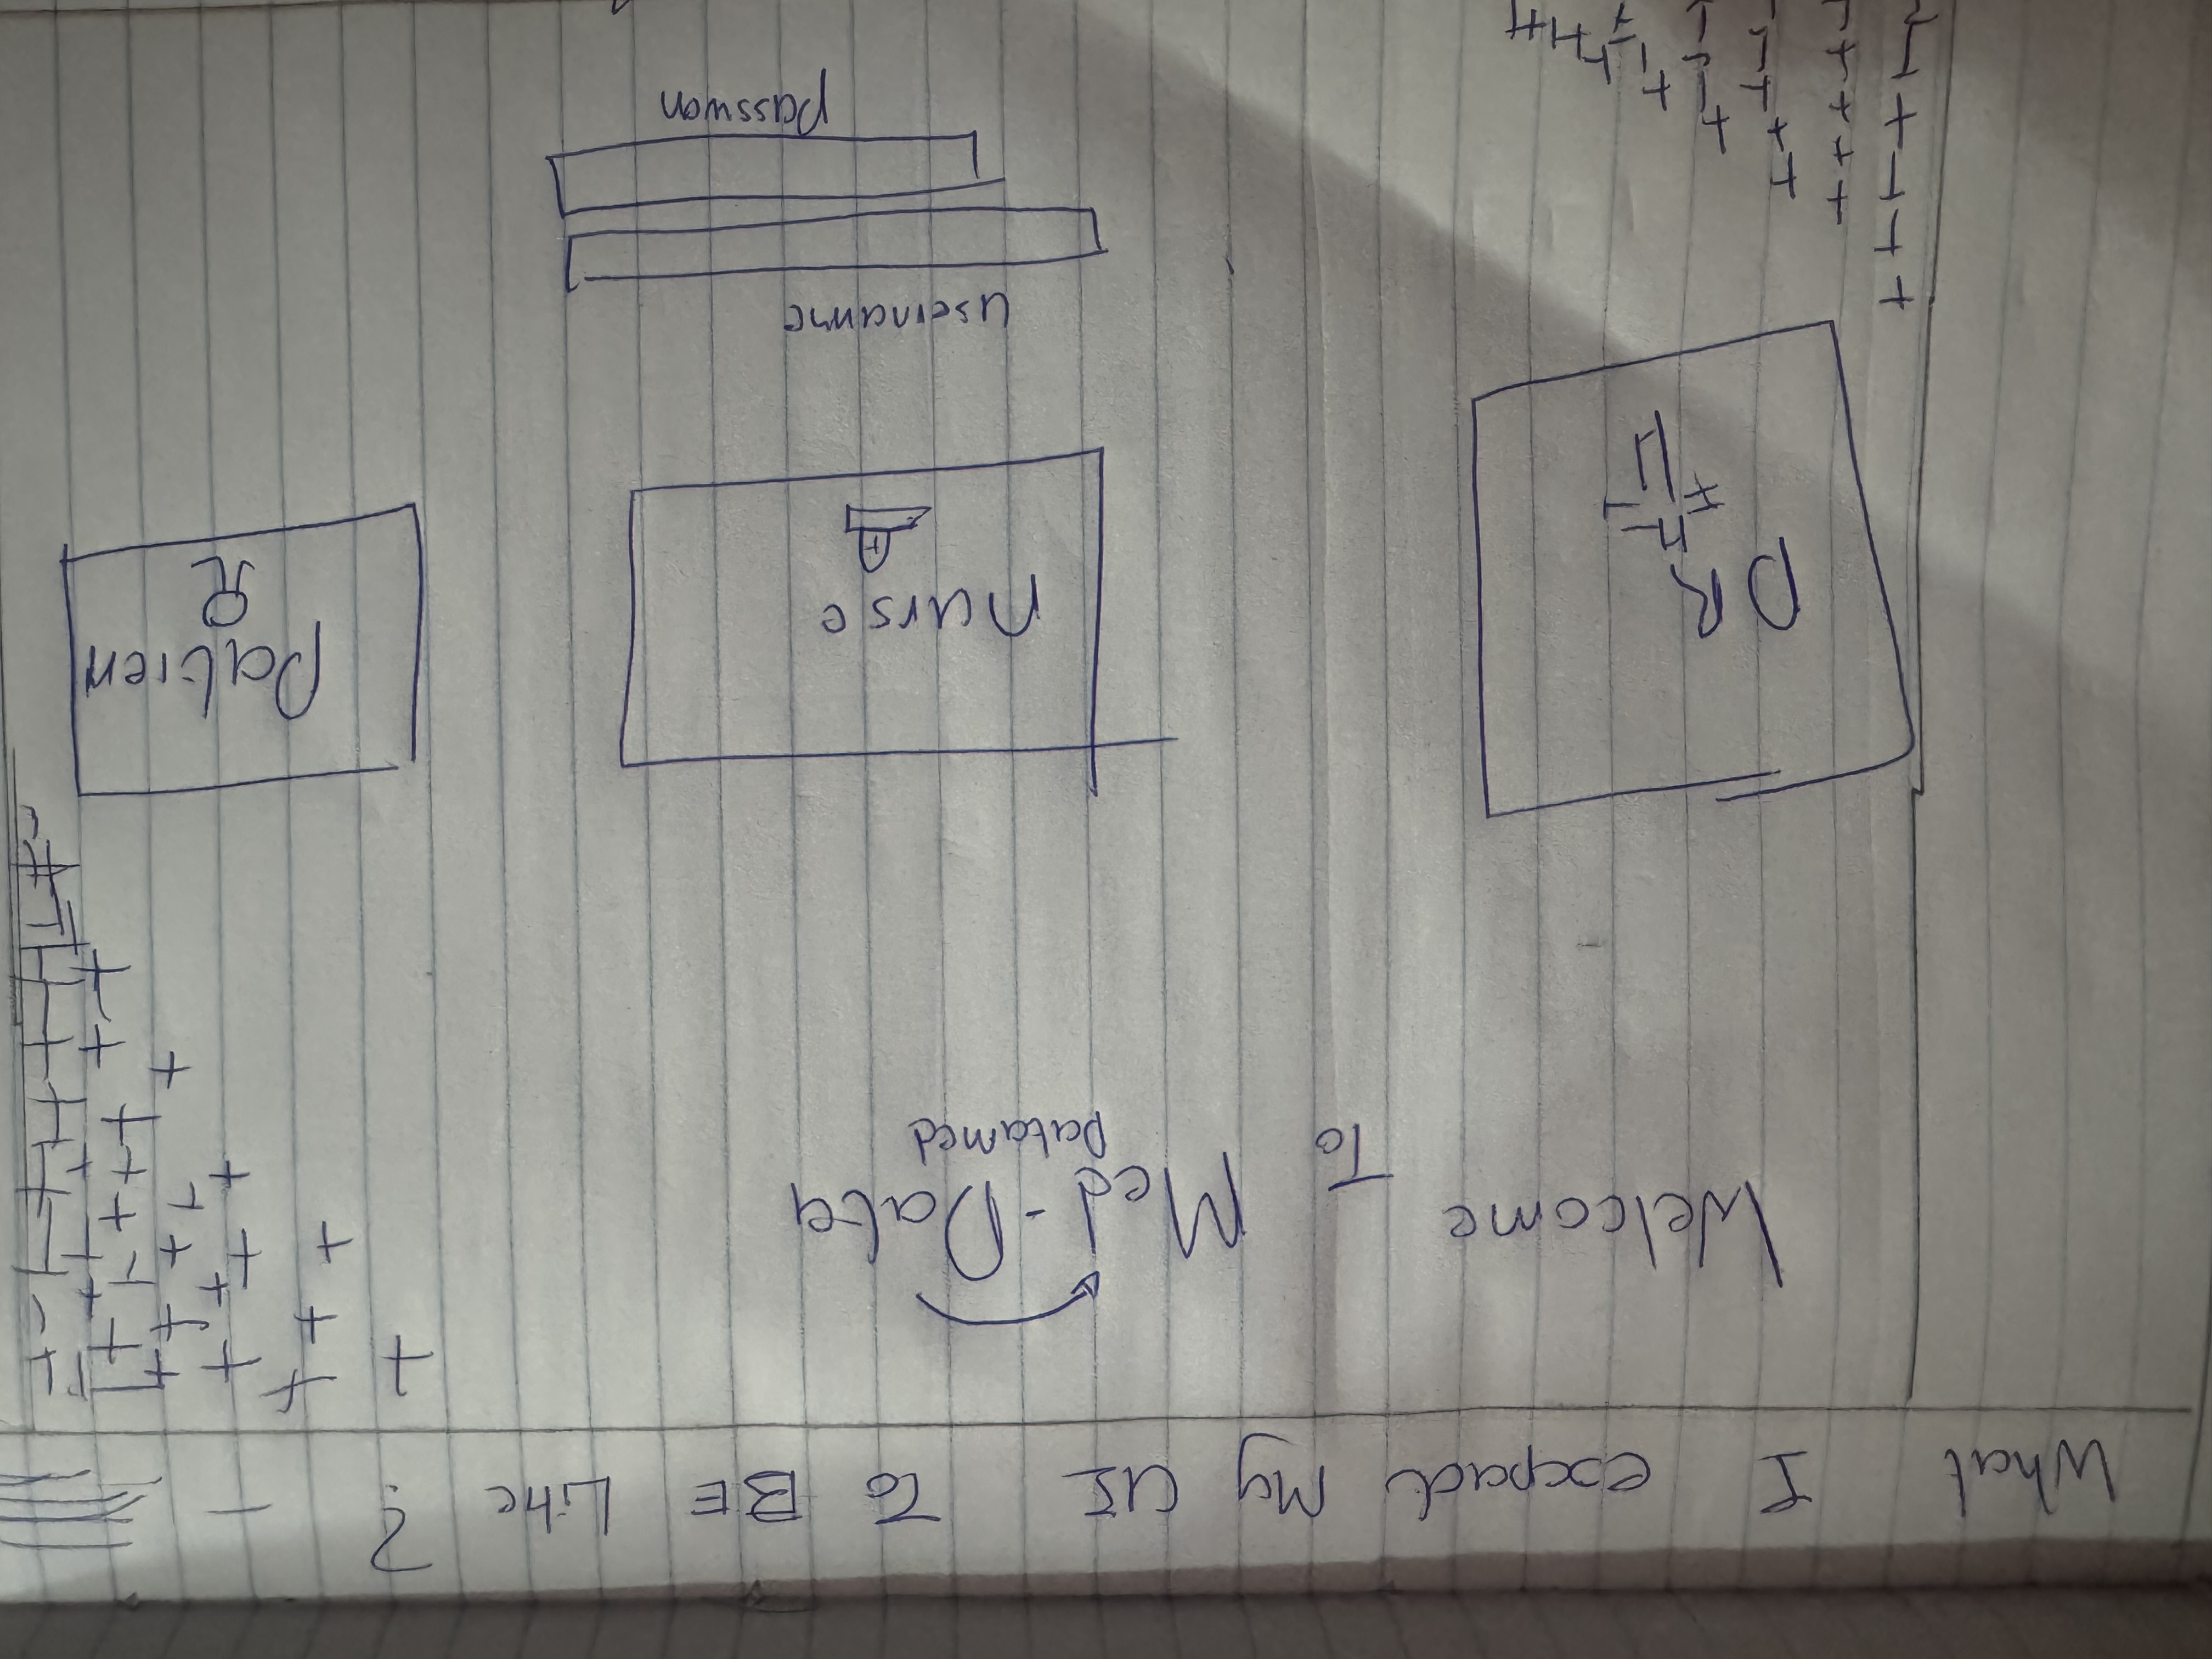 What I expad My UI To BE Like ?
Welcome To Med-Data
Datamed
DR
nurse
patien
username
passwon